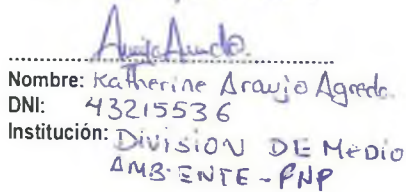 Nombre: Katherine Araujo Agreda.
DNI: 43215536
Institución: DIVISION DE MEDIO
AMBIENTE - PNP